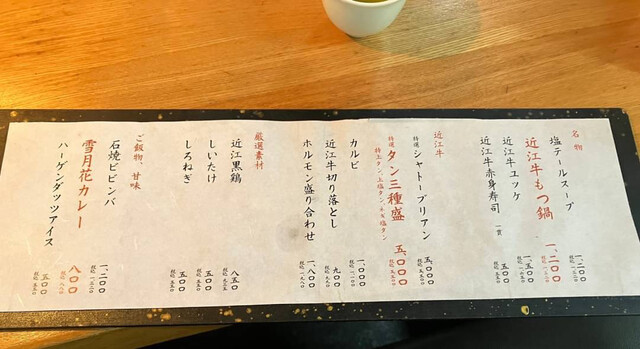 名物
塩テールスープ 一、二〇〇
近江牛もつ鍋 一、二〇〇
近江牛ユッケ 一、五〇〇
近江牛赤身寿司 一貫 五〇〇
近江牛
特選 シャトーブリアン 五、〇〇〇
特選 タン三種盛 五、〇〇〇
特上タン、上塩タン、ネギ塩タン
カルビ 一、〇〇〇
近江牛切り落とし 九〇〇
ホルモン盛り合わせ 一、八〇〇
厳選素材
近江黒鶏 八五〇
しいたけ 五〇〇
しろねぎ 五〇〇
ご飯物、甘味
石焼ビビンバ 一、二〇〇
雪月花カレー 八〇〇
ハーゲンダッツアイス 五〇〇